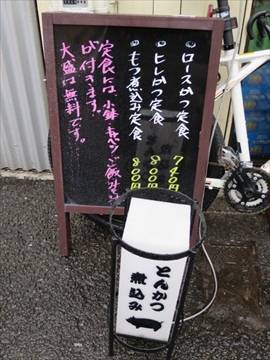 ロースかつ定食 740円
ヒレかつ定食 800円
もつ煮込み定食 800円
定食には、小鉢
が付きます。
大盛は無料です。
とんかつ
煮込み